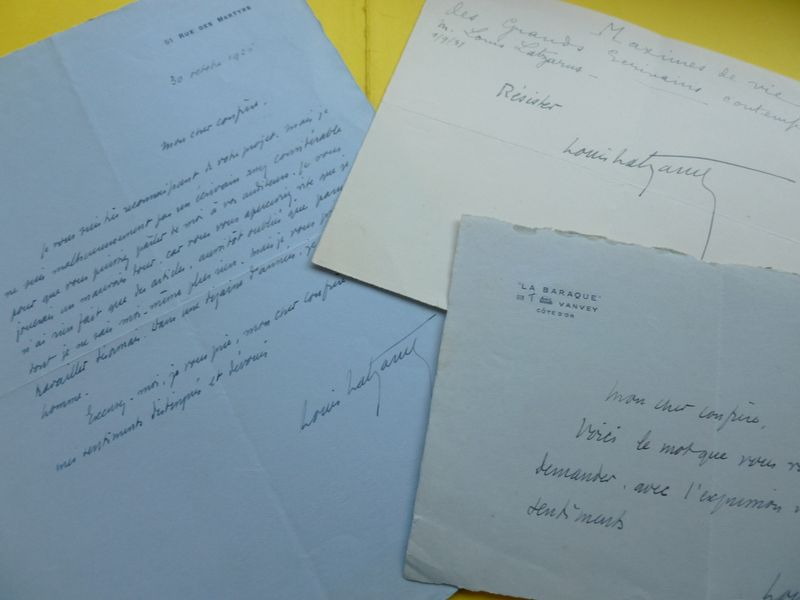 51 RUE DES MARTYRS
30 octobre
Mon cher confrère,
Je vous suis très reconnaissant de votre projet. Mais je
ne suis malheureusement pas un écrivain assez considérable
pour que vous puissiez parler de moi à vos auditeurs. Je vous
jouerais un mauvais tour, car vous vous apercevriez vite que je
n'ai rien fait que des articles, aussitôt oubliés que parus
tout je ne sais moi-même plus rien. Mais je vous
travailler désormais. Dans une dizaine d'années, je
homme.
Excusez-moi, je vous prie, mon cher confrère
mes sentiments distingués et dévoués
Louis Latzarus
Maximes de vie
des Grands Ecrivains contemp
M. Louis Latzarus
Résister
Louis Latzarus
"LA BARAQUE"
VANVEY
CÔTE D'OR
Mon cher confrère,
Voici le mot que vous
demander, avec l'expression
sentiments